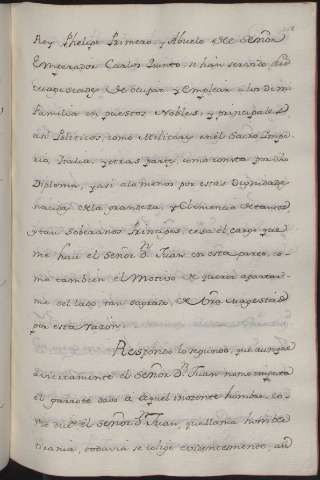 Rey Phelipe Primero, y Abuelo del Señor
Emperador Carlos Quinto, se han servido
de ocupar, y emplear a los demi
familia en puestos Nobles, y principales
Politicos, como Militares en el Sacro Impe
rio, Italia, y otras partes, como consta por
Diploma, y assi alomenos por estas Dignidades
nacidas de la grandeza, y Clemencia de tantos
y tan soberanos Principes, cesa el cargo que
me hace el Señor Dn Juan en esta parte, co
mo tambien el Motivo de querer apartar
me del lado tan sagrado de Vra Magestad
por esta razon.
Respondo lo segundo, que aunque
el Señor Dn Juan me imputa
el garrote dado a aquel inozente hombre, co
mo dice el Señor Dn Juan, que llama hombre
tirania, todavia se colige evidentemente, a